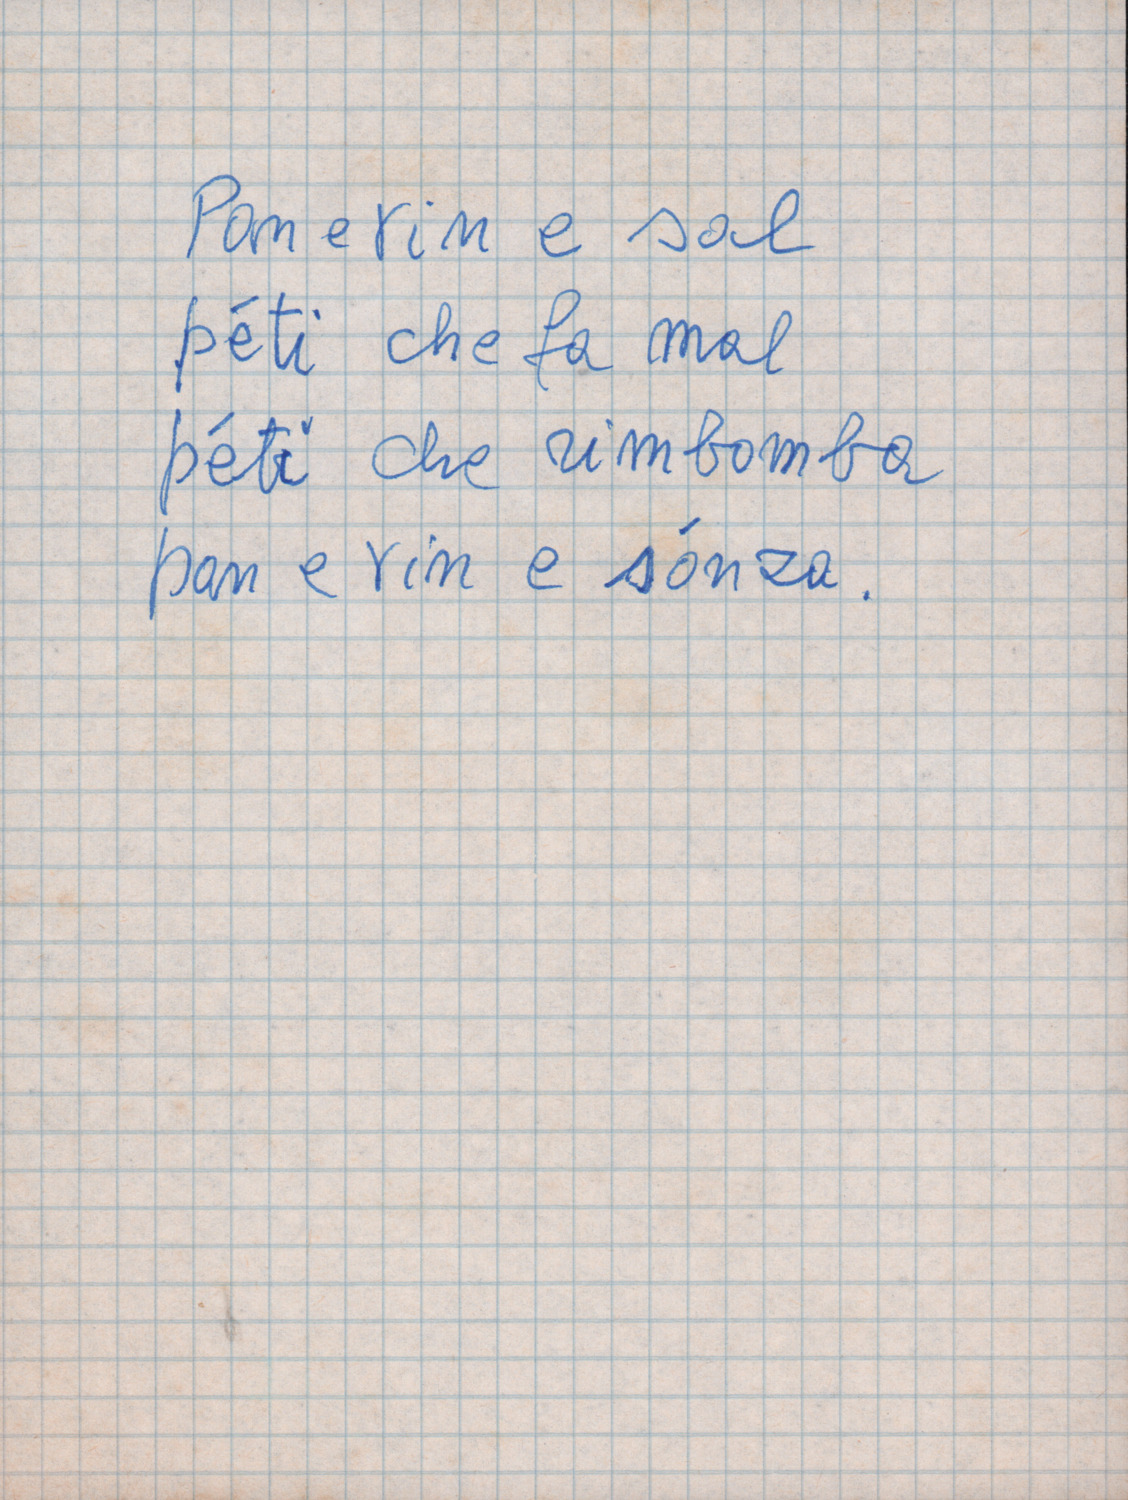 Pan e vin e sal
péti che fa mal
péti che rimbomba
pan e vin e sónza.